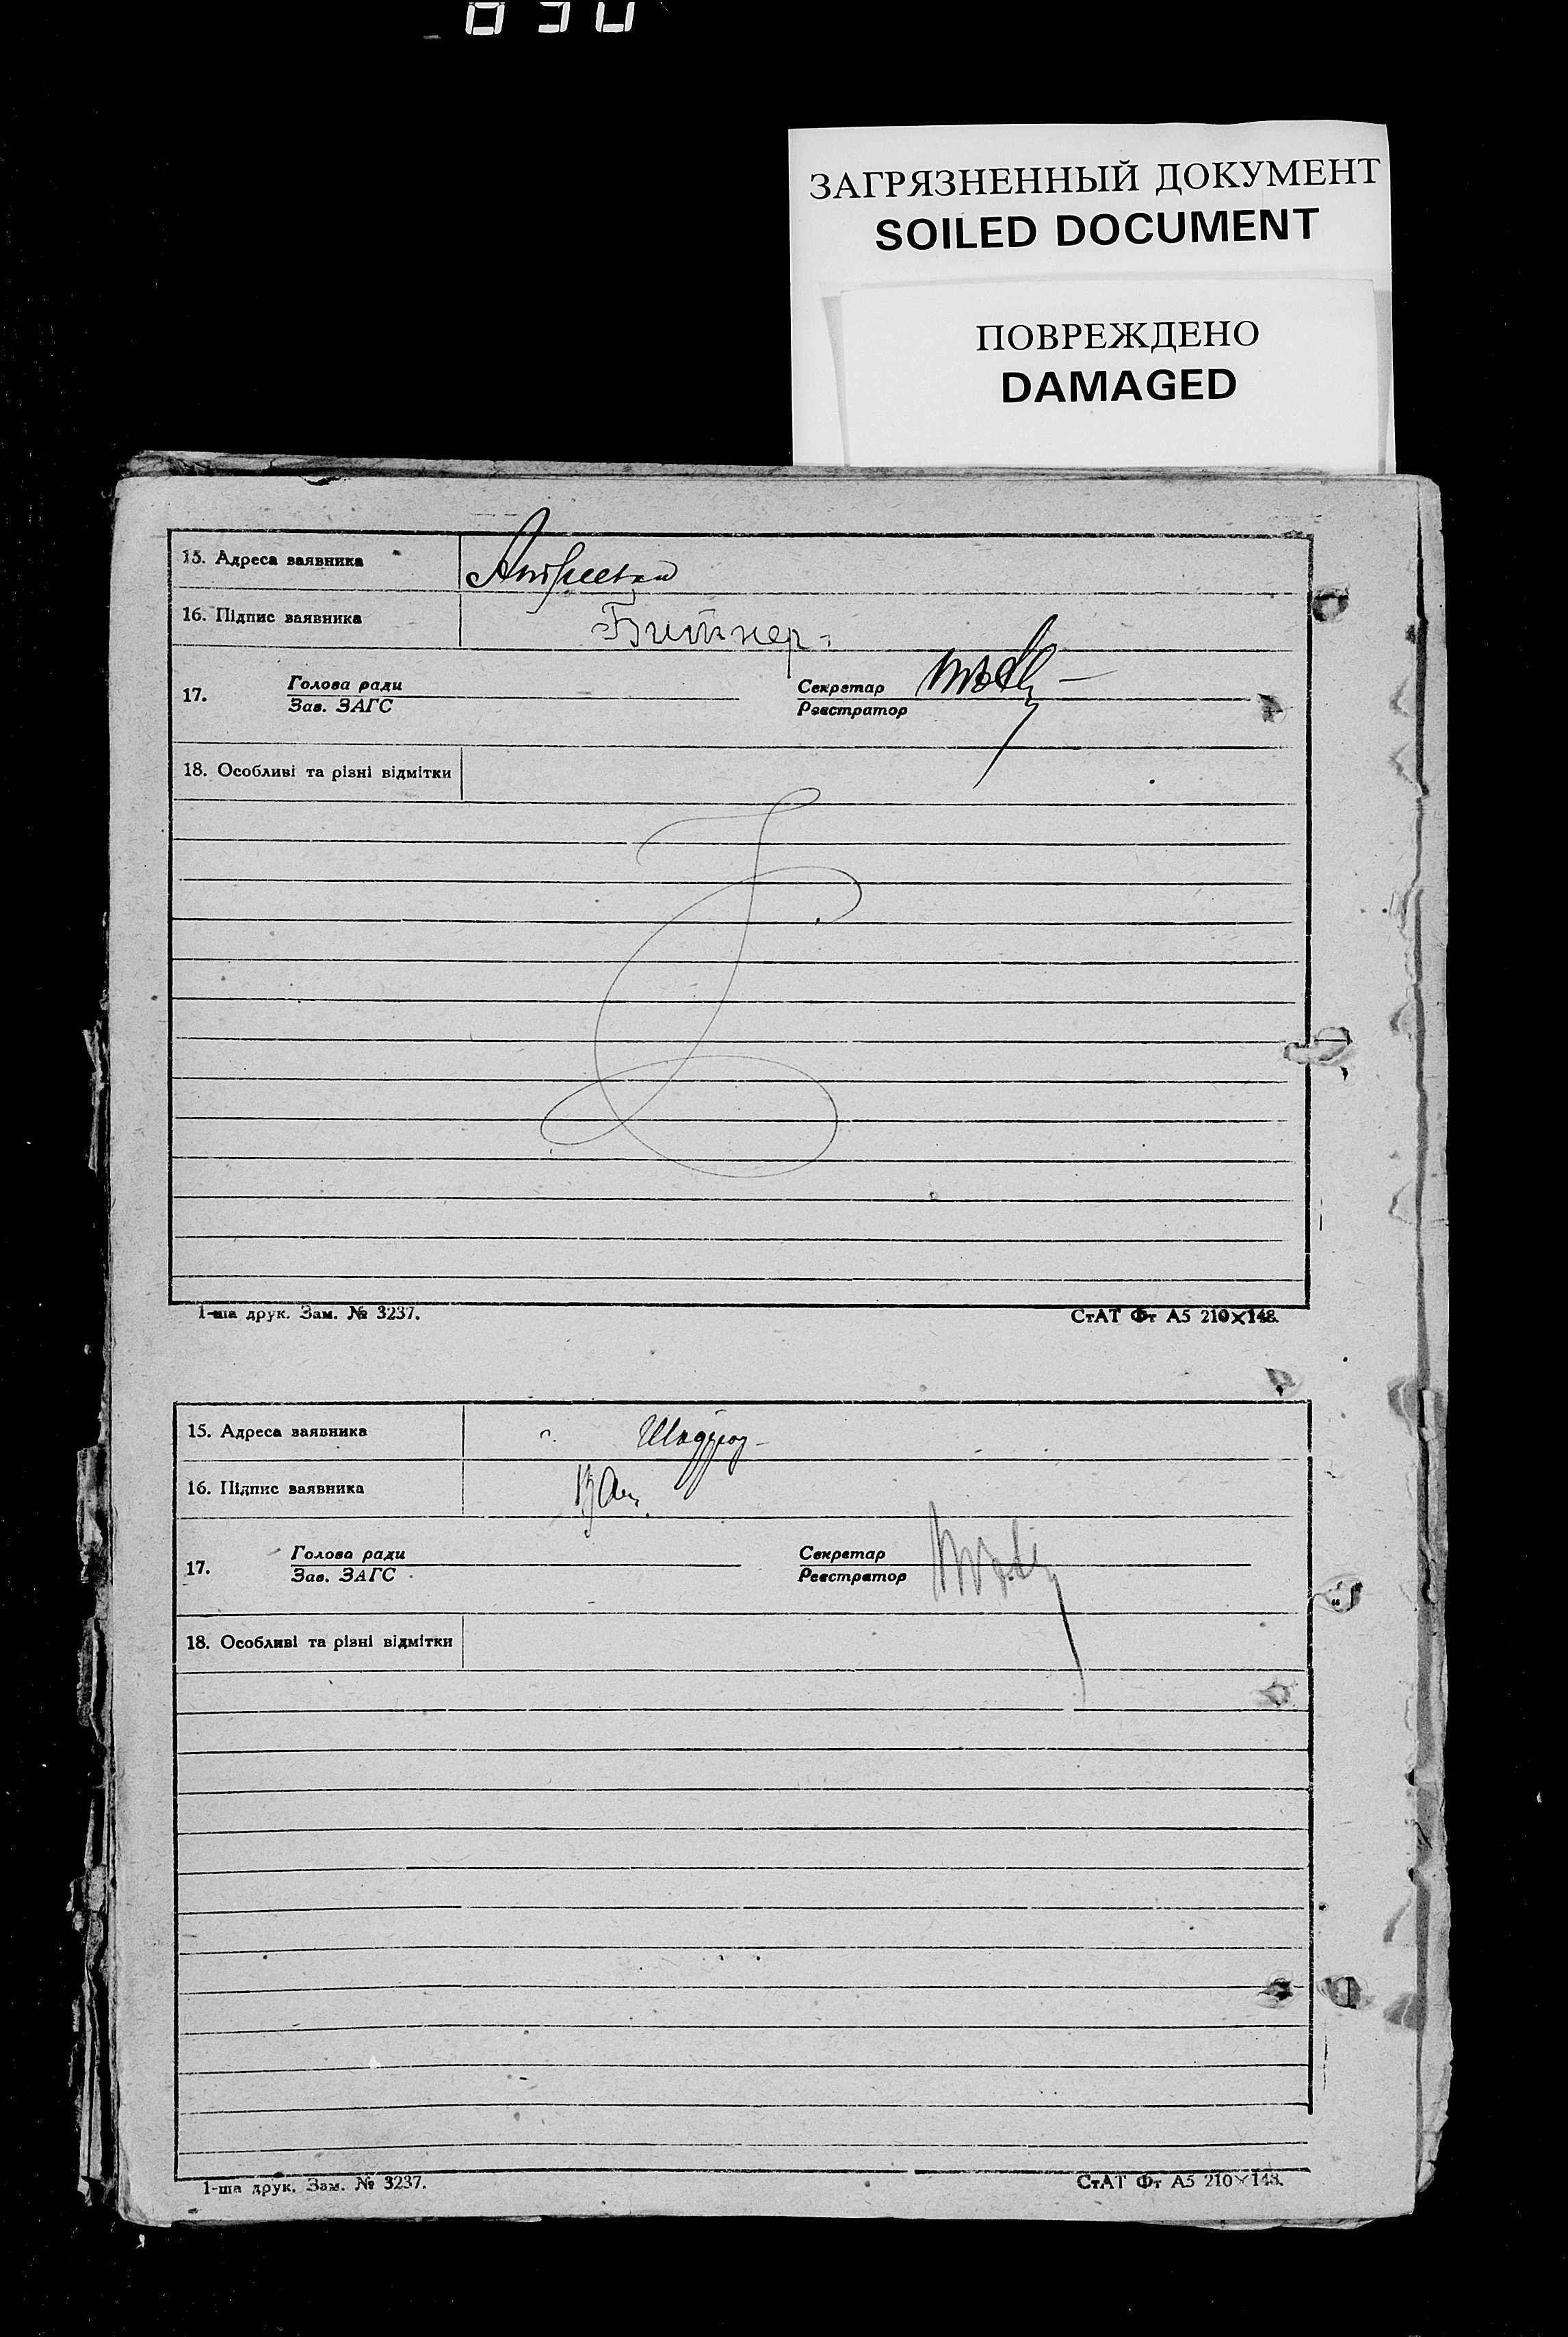 ЗАГРЯЗНЕННЫЙ ДОКУМЕНТ
SOILED DOCUMENT
ПОВРЕЖДЕНО
DAMAGED
15. Адреса заявника
16. Підпис заявника Битнер
17. Голова ради Секретар
Зав. ЗАГС Реєстратор
18. Особливі та різні відмітки
1-ша друк. Зам. № 3237.
СтАТ Фт А5 210×148.
15. Адреса заявника
16. Підпис заявника
17. Голова ради Секретар
Зав. ЗАГС Реєстратор
18. Особливі та різні відмітки
1-ша друк. Зам. № 3237.
СтАТ Фт А5 210×148.